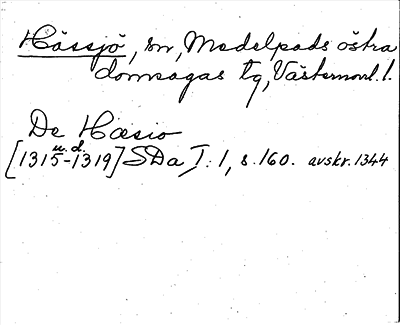 Hässjö, sn, Medelpads östra
domsagas tg, Västernorrl. l.
De Hæsio
u. d.
[1315-1319] SDa I: 1, s. 160. avskr. 1344